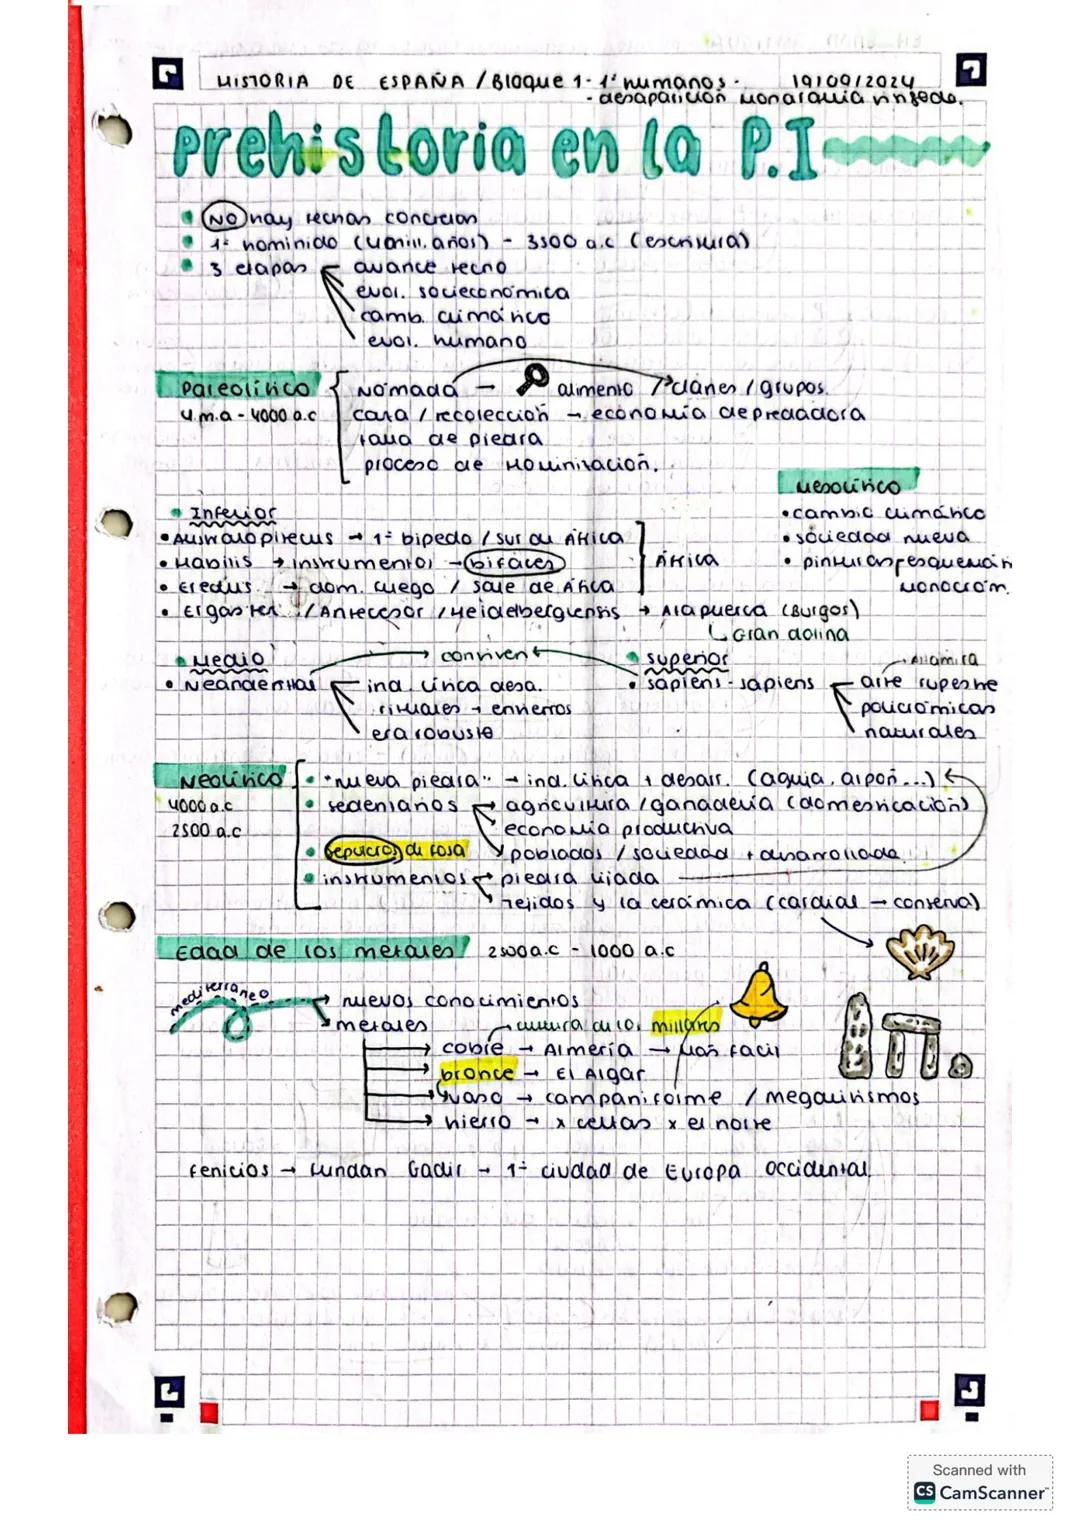 HISTORIA DE ESPAÑA / Bloque 1 - 1º humanos - 19/09/2024
- desaparición Monarquía visigoda.
Prehistoria en la P.I
NO hay fechas concretas
1º homínido (4 mill. años) - 3500 a.c (escritura)
3 etapas avance tecno
evol. socieconómica
camb. climático
evol. humano
Paleolítico Nómada - alimento clanes / grupos.
4 m.a - 4000 a.c caza / recolección → economía depredadora
talla de piedra
proceso de Hominización.
Mesolítico
• cambio climático
• sociedad nueva
• pinturas esquemán
monocrom.
Inferior
• Australopitecus → 1º bípedo / sur du África
• Habilis → instrumentos → bifaces África
• Erectus → dom. fuego / sale de África
• Ergaster / Antecesor / Heidelbergiensis → Atapuerca (Burgos)
Gran dolina
Medio conviven superior Altamira
• Neanderthal ind. lítica desa. • sapiens-sapiens arte rupestre
rituales → entierros policrómicas
era robusto naturales
Neolítico • "nueva piedra" → ind. lítica + desarr. (aguja, arpón...)
4000 a.c • sedentarios agricultura / ganadería (domesticación)
2500 a.c economía productiva
• sepulcros de fosa poblados / sociedad + desarrollada
• instrumentos piedra lijada
Tejidos y la cerámica (cardial → conserva)
Edad de los metales 2500 a.c - 1000 a.c
mediterráneo nuevos conocimientos
metales cultura du los millares
cobre → Almería → Más fácil
bronce → El Algar
vaso → campaniforme / megalitismos
hierro → x celtas x el norte
Fenicios → fundan Gadir → 1º ciudad de Europa occidental
Scanned with
CS CamScanner